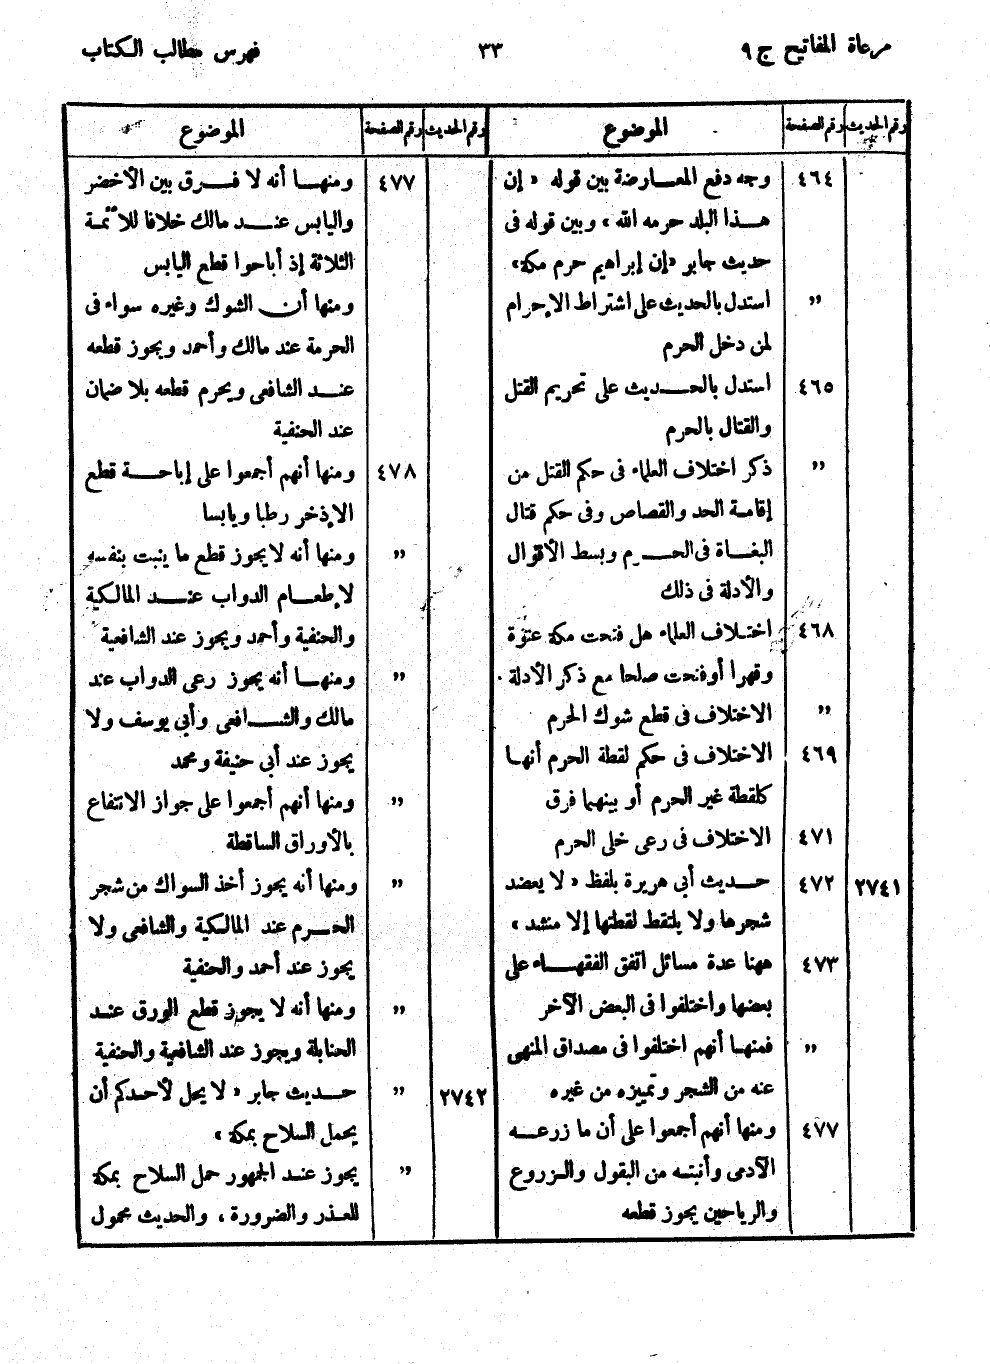 مرعاة المفاتيح ج ٩
٣٣
فهرس مطالب الكتاب
رقم الحديث رقم الصفحة الموضوع
٤٦٤ وجه دفع المعارضة بين قوله « إن
هذا البلد حرمه الله » وبين قوله فى
حديث جابر «إن إبراهيم حرم مكة»
” استدل بالحديث على اشتراط الإحرام
لمن دخل الحرم
٤٦٥ استدل بالحديث على تحريم القتل
والقتال بالحرم
” ذكر اختلاف العلماء فى حكم القتل من
إقامة الحد والقصاص وفى حكم قتال
البغاة فى الحرم وبسط الأقوال
والأدلة فى ذلك
٤٦٨ اختلاف العلماء هل فتحت مكة عنوة
وقهرا أو فتحت صلحا مع ذكر الأدلة
” الاختلاف فى قطع شوك الحرم
٤٦٩ الاختلاف فى حكم لقطة الحرم أنها
كلقطة غير الحرم أو بينهما فرق
٤٧١ الاختلاف فى رعى خلى الحرم
٢٧٤١ ٤٧٢ حديث أبي هريرة بلفظ « لا يعضد
شجرها ولا يلتقط لقطتها إلا منشد »
٤٧٣ ههنا عدة مسائل اتفق الفقهاء على
بعضها واختلفوا فى البعض الآخر
” فمنها أنهم اختلفوا فى مصداق المنهى
عنه من الشجر وتمييزه من غيره
٤٧٧ ومنها أنهم أجمعوا على أن ما زرعه
الآدمى وأنبته من البقول والزروع
والرياحين يجوز قطعه
رقم الحديث رقم الصفحة الموضوع
٤٧٧ ومنها أنه لا فرق بين الأخضر
واليابس عند مالك خلافا للأئمة
الثلاثة إذ أباحوا قطع اليابس
ومنها أن الشوك وغيره سواء فى
الحرمة عند مالك وأحمد ويجوز قطعه
عند الشافعى ويحرم قطعه بلا ضمان
عند الحنفية
٤٧٨ ومنها أنهم أجمعوا على إباحة قطع
الإذخر رطبا ويابسا
” ومنها أنه لا يجوز قطع ما ينبت بنفسه
لإطعام الدواب عند المالكية
والحنفية وأحمد ويجوز عند الشافعية
” ومنها أنه يجوز رعى الدواب عند
مالك والشافعى وأبي يوسف ولا
يجوز عند أبي حنيفة ومحمد
” ومنها أنهم أجمعوا على جواز الانتفاع
بالأوراق الساقطة
” ومنها أنه يجوز أخذ السواك من شجر
الحرم عند المالكية والشافعى ولا
يجوز عند أحمد والحنفية
” ومنها أنه لا يجوز قطع الورق عند
الحنابلة ويجوز عند الشافعية والحنفية
٢٧٤٢ ” حديث جابر « لا يحل لأحدكم أن
يحمل السلاح بمكة »
” يجوز عند الجمهور حمل السلاح بمكة
للعذر والضرورة ، والحديث محمول